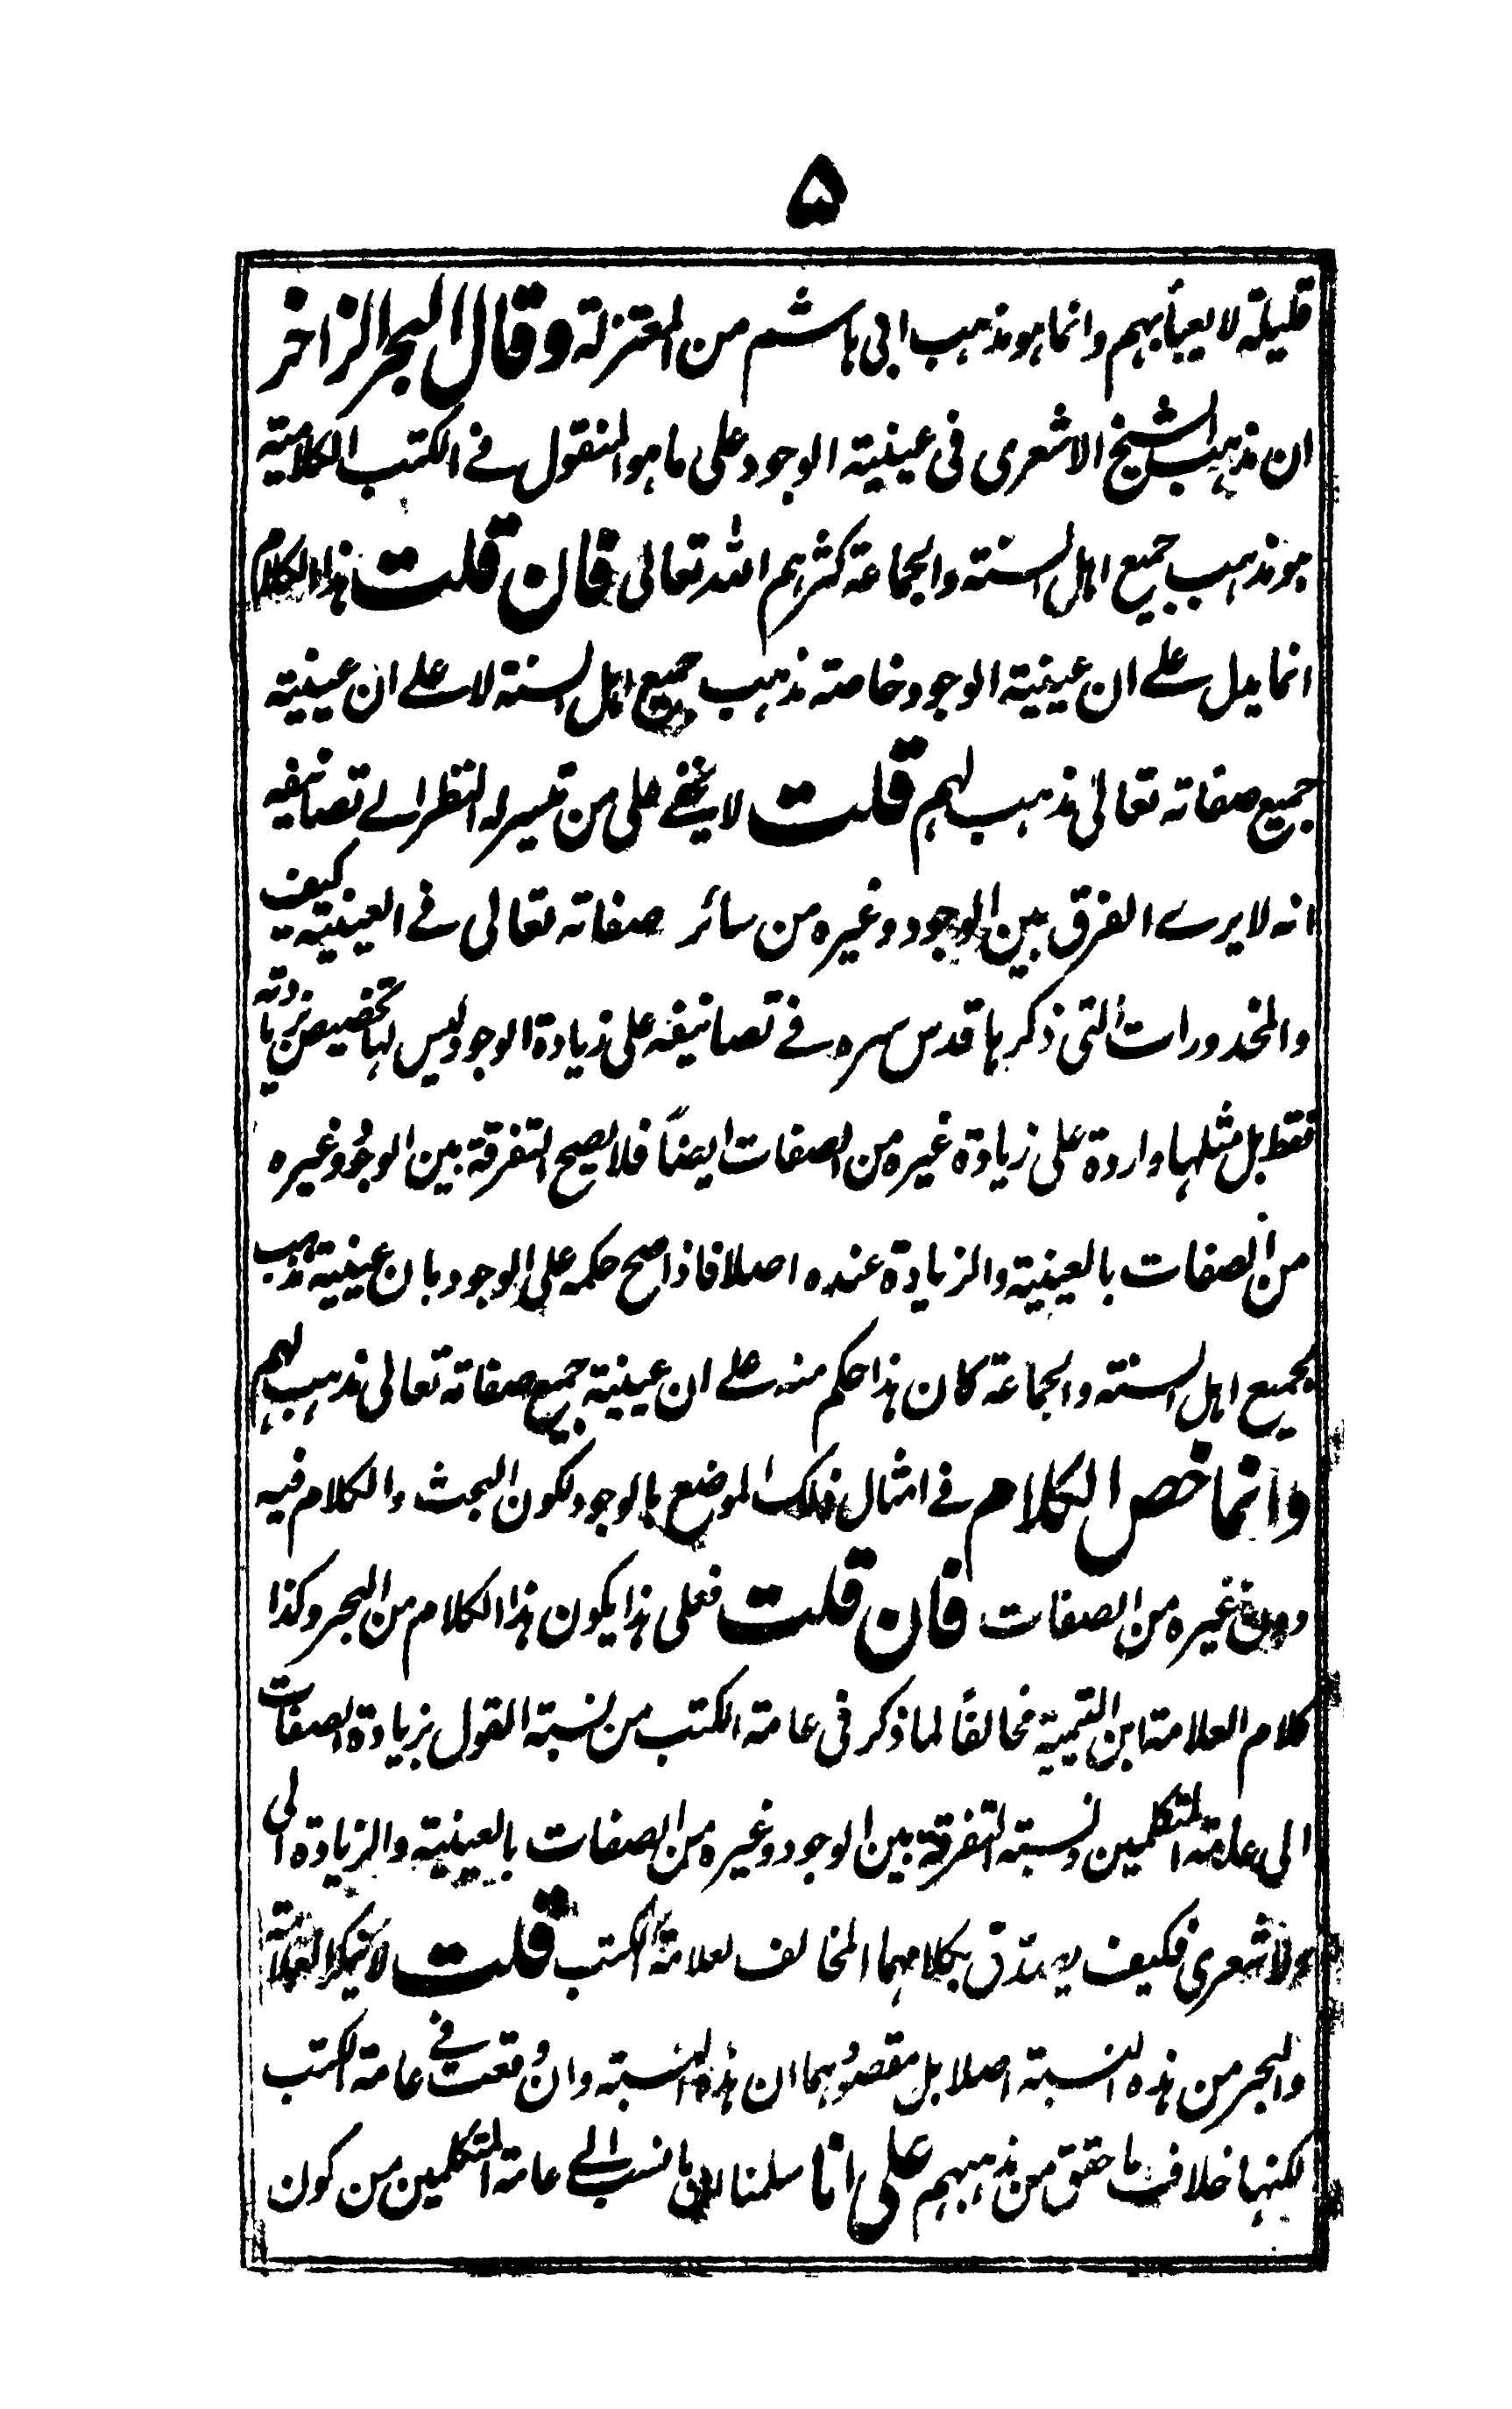 ۵
قليلة لا يعبأ بهم وانما هو مذهب ابى هاشم من المعتزلة وقال البحر الزاخر
ان مذهب الشيخ الاشعرى فى عينية الوجود على ما هو المنقول فے الكتب الكلامية
هو مذهب جميع اهل السنة والجماعة كثرهم الله تعالى فان قلت هذا الكلام
انما يدل علے ان عينية الوجود خاصة مذهب جميع اهل السنة لا علے ان عينية
جميع صفاته تعالى مذهب لهم قلت لا يخفے على من تيسر له النظر الے تصانيفه
انه لا يرے الفرق بين الوجود وغيره من سائر صفاته تعالى فے العينية كيف
والمحذورات التى ذكرها قدس سره فے تصانيفه على زيادة الوجود ليس لها تخصيص بزيادته
فقط بل مثلها واردة على زيادة غيره من الصفات ايضاً فلا يصح التفرقة بين الوجود وغيره
من الصفات بالعينية والزيادة عنده اصلا فاذا صح حكمه على الوجود بان عينية مذهب
لجميع اهل السنة والجماعة كان هذا حكم منه علے ان عينية جميع صفاته تعالى مذهب لهم
وانما خص الكلام فے امثال ذلك الموضع بالوجود لكون البحث والكلام فيه
دون غيره من الصفات فان قلت فعلى هذا يكون هذا الكلام من البحر وكذا
كلام العلامة ابن التيمية مخالفاً لما ذكر فى عامة الكتب من نسبة القول بزيادة الصفات
الى عامة المتكلمين ونسبة التفرقة بين الوجود وغيره من الصفات بالعينية والزيادة الى
الاشعرى فكيف يصدق بكلامهما المخالف لعامة الكتب قلت لا ينكر العلامة
والبحر من هذه النسبة اصلا بل مقصودهما ان هذه النسبة وان وقعت فے عامة الكتب
لكنها خلاف ما حقق من مذهبهم على انا سلمنا ان ما نسب الے عامة المتكلمين من كون